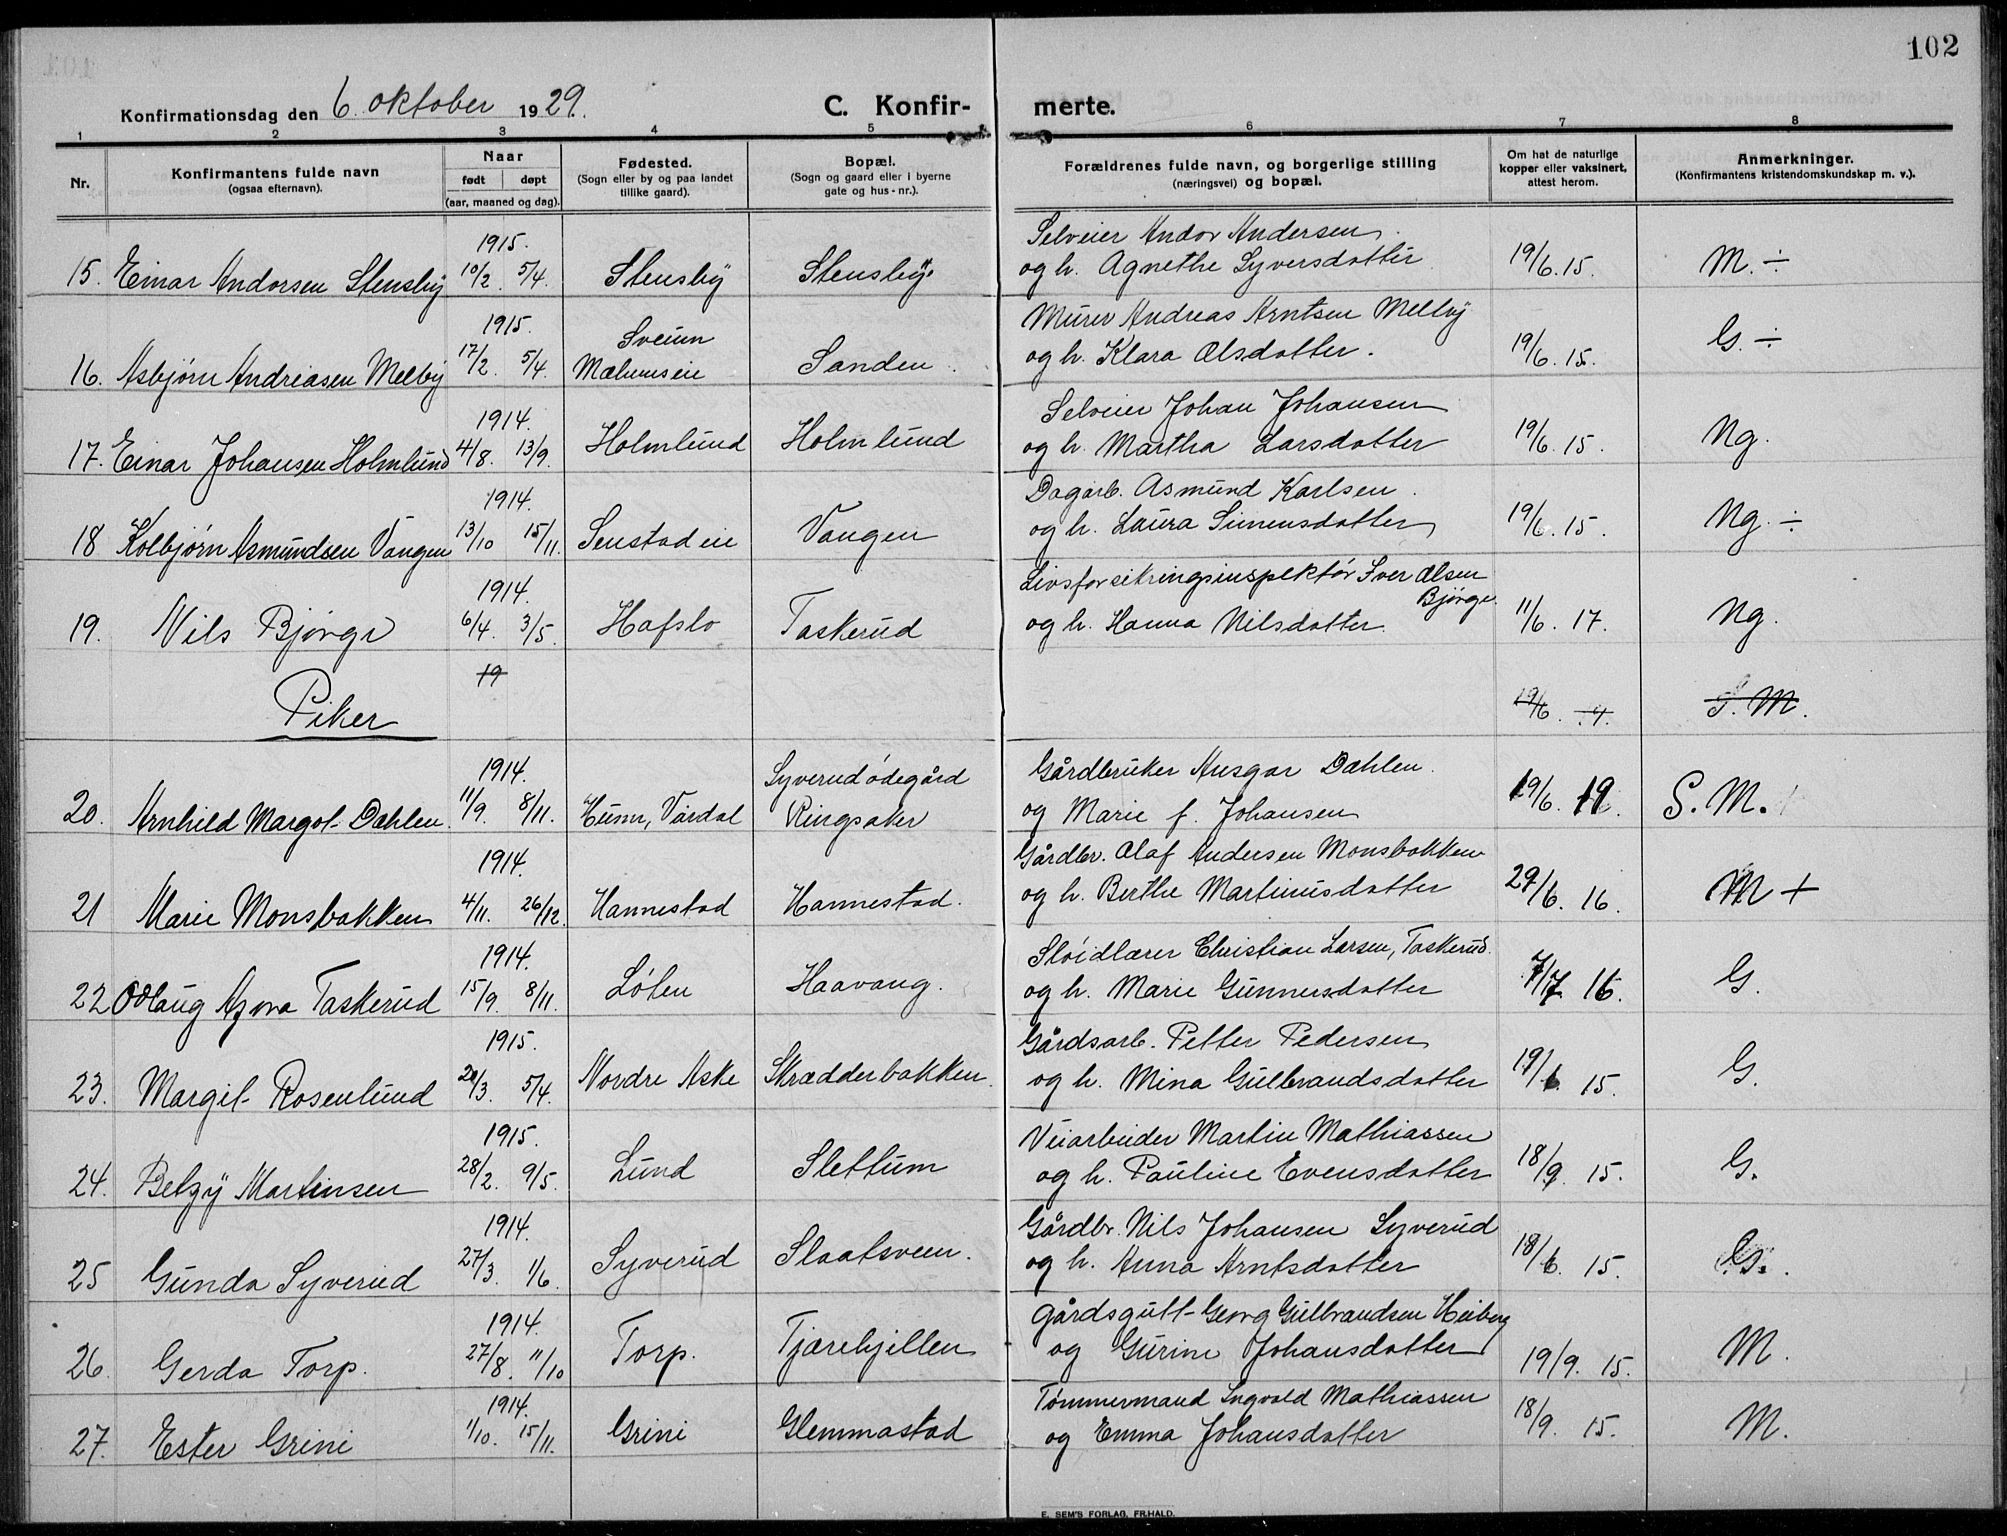 102
Konfirmationsdag den 6. oktober 1929.
C. Konfir-
merte.
1 2 3 4 5 6 7 8
Nr.
Konfirmantens fulde navn
(ogsaa efternavn).
Naar
født døpt
(aar, maaned og dag).
Fødested.
(Sogn eller by og paa landet
tillike gaard).
Bopæl.
(Sogn og gaard eller i byerne
gate og hus-nr.).
Forældrenes fulde navn, og borgerlige stilling
(næringsvei) og bopæl.
Om hat de naturlige
kopper eller vaksinert,
attest herom.
Anmerkninger.
(Konfirmantens kristendomskundskap m. v.).
1915. Selveier Andor Andersen
15. Einar Andorsen Stensby 10/2 5/4. Stensby Stensby. og h. Agnethe Syversdatter 19/6.15. M. ÷
1915. Sveum Murer Andreas Arntsen Melby
16. Asbjørn Andreasen Melby 17/2. 5/4. Mælumseie Sanden. og h. Klara Olsdatter. 19/6.15. G. ÷
1914. Selveier Johan Johansen
17. Einar Johansen Holmlund 4/8. 13/9. Holmlund Holmlund og h. Martha Larsdatter 19/6.15. Ng.
1914. Dagarb. Asmund Karlsen
18 Kolbjørn Asmundsen Vangen 13/10 15/11. Senstadeie Vangen og h. Laura Simensdatter 19/6.15. Ng. ÷
1914. Livsforsikringsinspektør Iver Olsen
Bjørge
19. Nils Bjørge 6/4. 3/5. Hafslo Taskerud og h. Hanna Nilsdatter. 11/6. 17. Ng.
19
Piker 19/6. S. M.
1914. Syverudødegård Gårdbruker Ansgar Dahlen.
20. Arnhild Margot Dahlen. 11/9. 8/11. Hunn, Vardal Ringsaker og Marie f. Johansen 19/6. 19. S. M.
1914. Gårdbr. Olaf Andersen Monsbakken
21 Marie Monsbakken 4/11. 26/12. Hannestad Hannestad. og h. Berthe Martinusdatter 29/6. 16. M +
1914. Sløidlærer Christian Larsen, Taskerud.
22 Odlaug Agora Taskerud 15/9. 8/11. Løten Haavang. og h. Marie Gunnersdatter 7/7. 16. G.
1915. Gårdsarb. Petter Pedersen
23. Margit Rosenlund 20/3. 5/4. Nordre Aske Skrædderbakken. og h. Mina Gulbrandsdatter 19/6. 15. G.
1915. Veiarbeider Martin Mathiassen
24. Betzy Martinsen 28/2. 9/5. Lund Slettum og h. Pauline Evensdatter 18/9. 15. G.
1914. Gårdbr. Nils Johansen Syverud
25 Gunda Syverud 27/3. 1/6. Syverud Slaatsveen. og h. Anna Arntsdatter 18/6. 15. G.
1914. Gårdsgutt Georg Gulbrandsen Heiberg
26. Gerda Torp. 27/8. 11/10 Torp. Tjærehjellen og Gurine Johansdatter 19/9. 15. M.
1914. Tømmermand Ingvald Mathiassen
27. Ester Grini 1/10. 15/11. Grini Glemmastad og Emma Johansdatter 18/9. 15. M.
E. SEM'S FORLAG, FR.HALD.